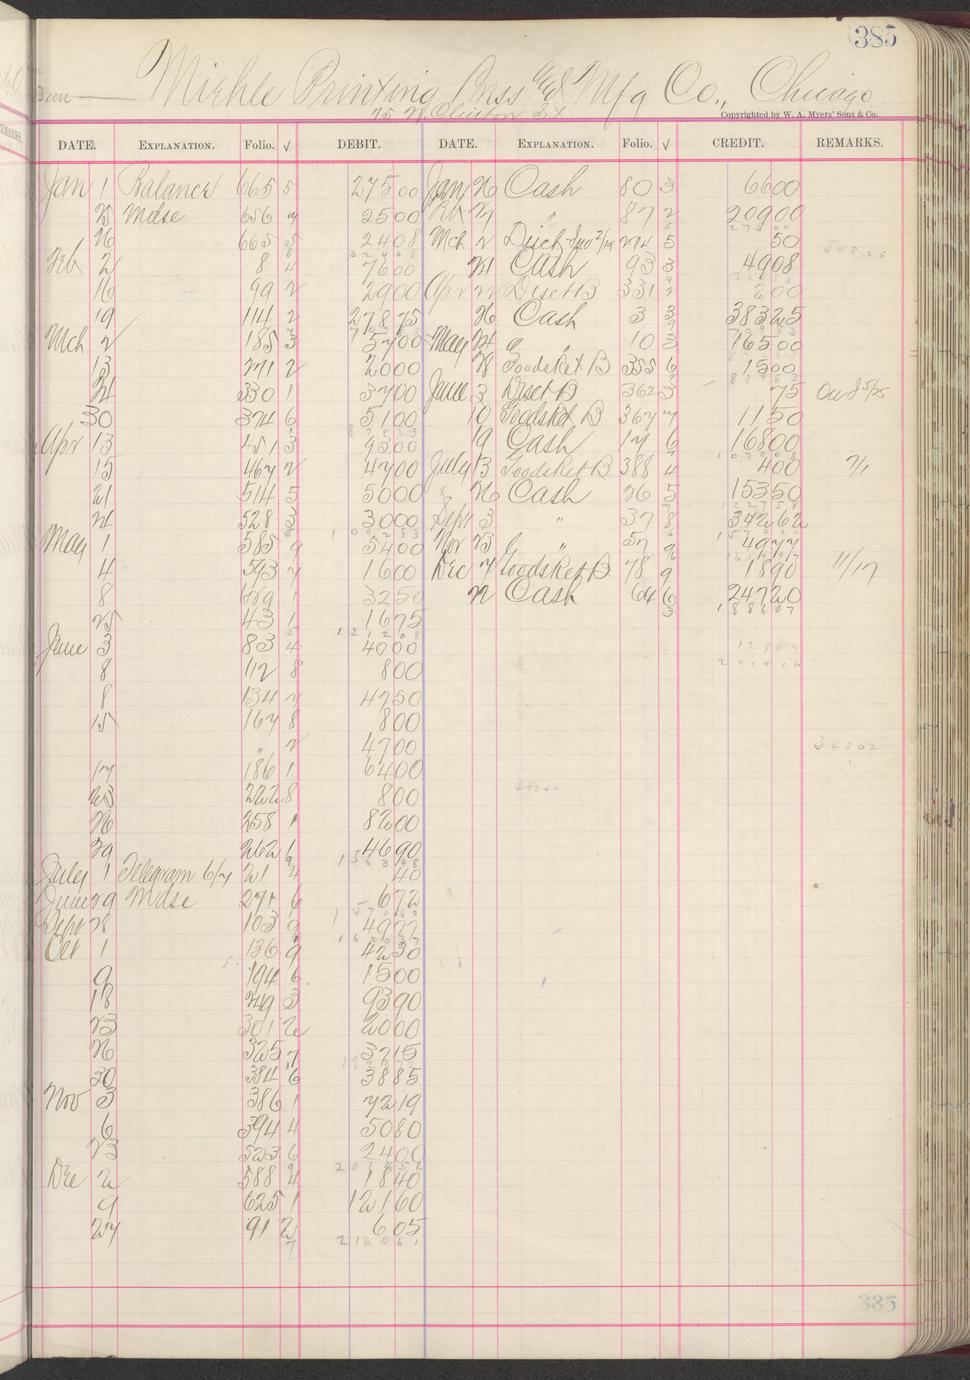 385
Miehle Printing Press & Mfg Co., Chicago
75 N. Clinton St
Copyrighted by W. A. Myers' Sons & Co.
DATE. EXPLANATION. Folio. √ DEBIT. DATE. EXPLANATION. Folio. √ CREDIT. REMARKS.
Jan 1 Balance 665 5 275 00 Jan 26 Cash 80 3 66 00
25 Mdse 656 7 25 00 Feb 27 " 87 2 209 00
26 665 5 24 08 Mch 2 294 5 50
Feb 2 8 4 76 00 24 Cash 93 3 49 08
16 99 2 29 00 Apr 22 Disct B 331 2 2 00
19 114 2 278 75 26 Cash 3 3 383 25
Mch 2 185 3 57 00 May 24 " 10 3 165 00
13 271 2 20 00 28 Goods Ret B 355 6 15 00
24 330 1 37 00 June 3 Disct B 362 3 75
30 374 6 51 00 10 Goods Ret B 367 7 11 50
Apr 13 451 3 93 00 19 Cash 17 6 168 00
15 467 2 47 00 July 13 Goods Ret B 388 4 4 00 7/1
21 514 5 50 00 26 Cash 26 5 153 50
24 528 3 30 00 Sept 3 " 37 8 342 62
May 1 585 9 54 00 Nov 23 " 57 9 49 77
4 593 7 16 00 Dec 7 Goods Ret B 78 9 18 90 11/17
8 629 1 32 50 22 Cash 64 6 247 20
25 43 1 16 75
June 3 83 4 40 00
8 112 8 8 00
8 134 7 42 50
15 167 8 8 00
" 2 47 00
17 186 1 64 00
23 222 8 8 00
26 258 1 82 00
29 262 1 46 90
July 1 Telegram 6/7 21 4 40
June 29 Mdse 271 6 6 72
Sept 28 103 9 49 77
Oct 1 136 9 42 30
9 194 6 15 00
18 249 3 93 90
23 301 2 20 00
26 325 7 37 15
30 384 6 38 85
Nov 3 386 1 72 19
6 394 4 50 80
23 523 6 24 00
Dec 2 588 4 18 40
9 625 1 121 60
27 91 2 6 05
2160 61